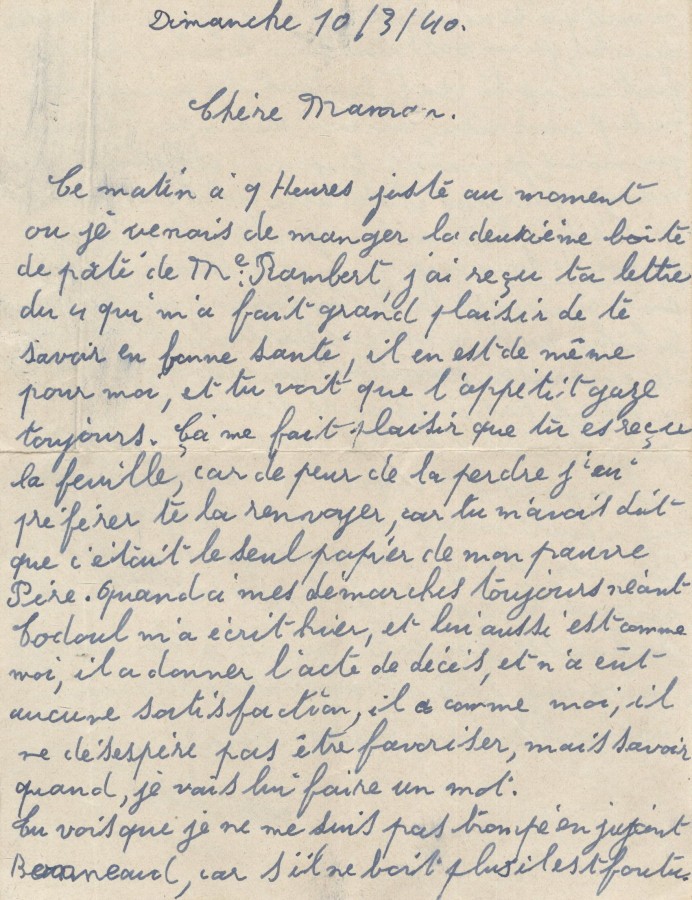 Dimanche 10/3/40.
Chère Maman.
Ce matin à 9 Heures juste au moment
ou je venais de manger la deuxième boite
de pâté de Me. Rambert, j'ai reçu ta lettre
du 4 qui m'a fait grand plaisir de te
savoir en bonne santé, il en est de même
pour moi, et tu voit que l'appétit gaze
toujours. Çà me fait plaisir que tu es reçu
la feuille, car de peur de la perdre j'ai
préférer te la renvoyer, car tu m'avais dit
que c'était le seul papier de mon pauvre
Père. Quand à mes démarches toujours néant
Codoul m'a écrit hier, et lui aussi est comme
moi, il a donner l'acte de décès, et n'a eût
aucune satisfaction, il comme moi, il
ne désespère pas être favoriser, mais savoir
quand, je vais lui faire un mot.
Tu vois que je ne me suis pas trompé en jugeant
car s'il ne boit plus il est foutu.